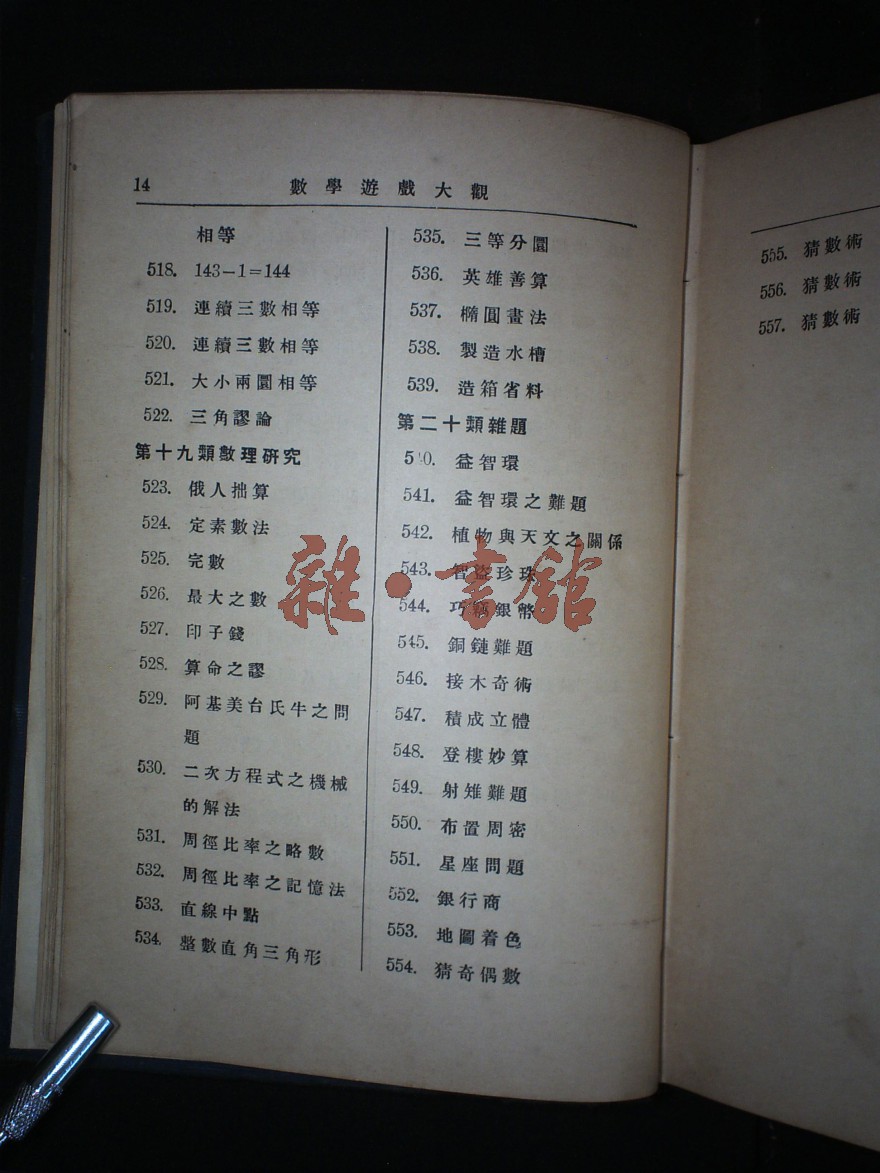 14
數學遊戲大觀
相等
518. 143-1=144
519. 連續三數相等
520. 連續三數相等
521. 大小兩圜相等
522. 三角謬論
第十九類數理研究
523. 俄人拙算
524. 定素數法
525. 完數
526. 最大之數
527. 印子錢
528. 算命之謬
529. 阿基美台氏牛之問
題
530. 二次方程式之機械
的解法
531. 周徑比率之略數
532. 周徑比率之記憶法
533. 直線中點
534. 整數直角三角形
535. 三等分圜
536. 英雄善算
537. 橢圓畫法
538. 製造水槽
539. 造箱省料
第二十類雜題
540. 益智環
541. 益智環之難題
542. 植物與天文之關係
543. 智盜珍珠
544. 巧竊銀幣
545. 銅鏈難題
546. 接木奇術
547. 積成立體
548. 登樓妙算
549. 射雉難題
550. 布置周密
551. 星座問題
552. 銀行商
553. 地圖着色
554. 猜奇偶數
555. 猜數術
556. 猜數術
557. 猜數術
雜·書館